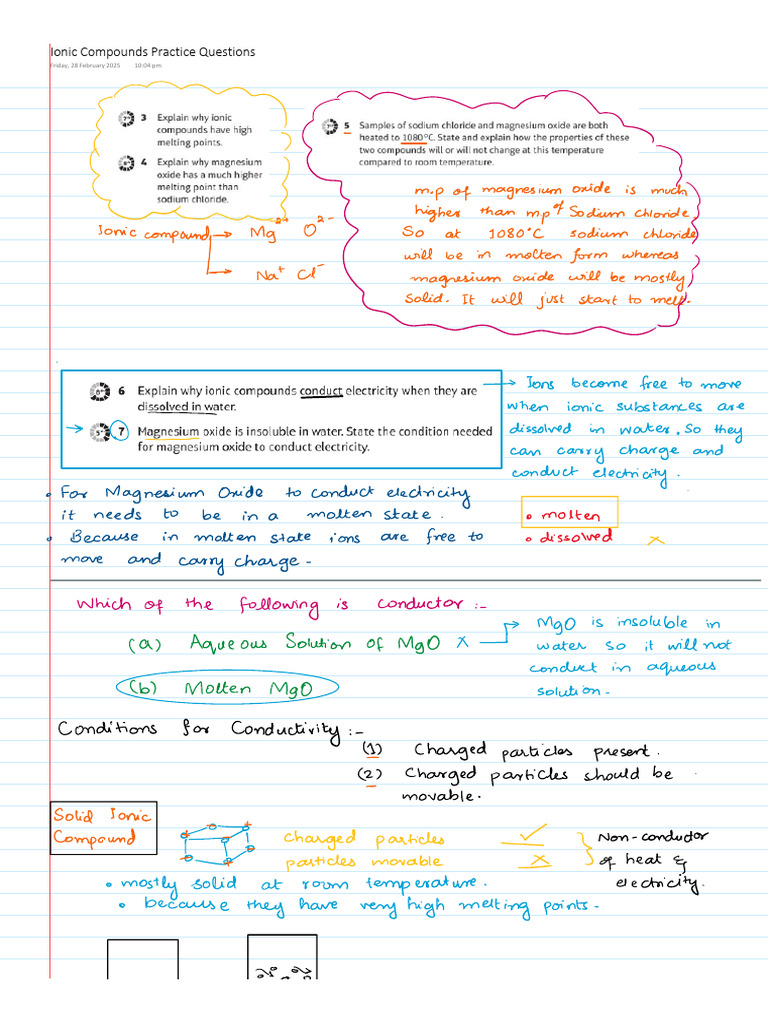 Ionic Compounds Practice Questions
Friday, 28 February 2025 10:04 pm
3 Explain why ionic
compounds have high
melting points.
4 Explain why magnesium
oxide has a much higher
melting point than
sodium chloride.
5 Samples of sodium chloride and magnesium oxide are both
heated to 1080°C. State and explain how the properties of these
two compounds will or will not change at this temperature
compared to room temperature.
m.p of magnesium oxide is much
higher than mp of Sodium chloride
So at 1080°C sodium chloride
will be in molten form whereas
magnesium oxide will be mostly
solid. It will just start to melt.
Ionic compound → Mg²⁺ O²⁻
→ Na⁺ Cl⁻
6 Explain why ionic compounds conduct electricity when they are
dissolved in water.
→ 7 Magnesium oxide is insoluble in water. State the condition needed
for magnesium oxide to conduct electricity.
→ Ions become free to move
when ionic substances are
dissolved in water. So they
can carry charge and
conduct electricity.
• For Magnesium Oxide to conduct electricity
it needs to be in a molten state.
• Because in molten state ions are free to
move and carry charge.
• molten
• dissolved ×
Which of the following is conductor :-
(a) Aqueous Solution of MgO ×
→ MgO is insoluble in
water so it will not
conduct in aqueous
solution.
(b) Molten MgO
Conditions for Conductivity :-
(1) Charged particles present.
(2) Charged particles should be
movable.
Solid Ionic
Compound
charged particles ✓
particles movable ×
Non-conductor
of heat &
electricity.
• mostly solid at room temperature.
• because they have very high melting points.